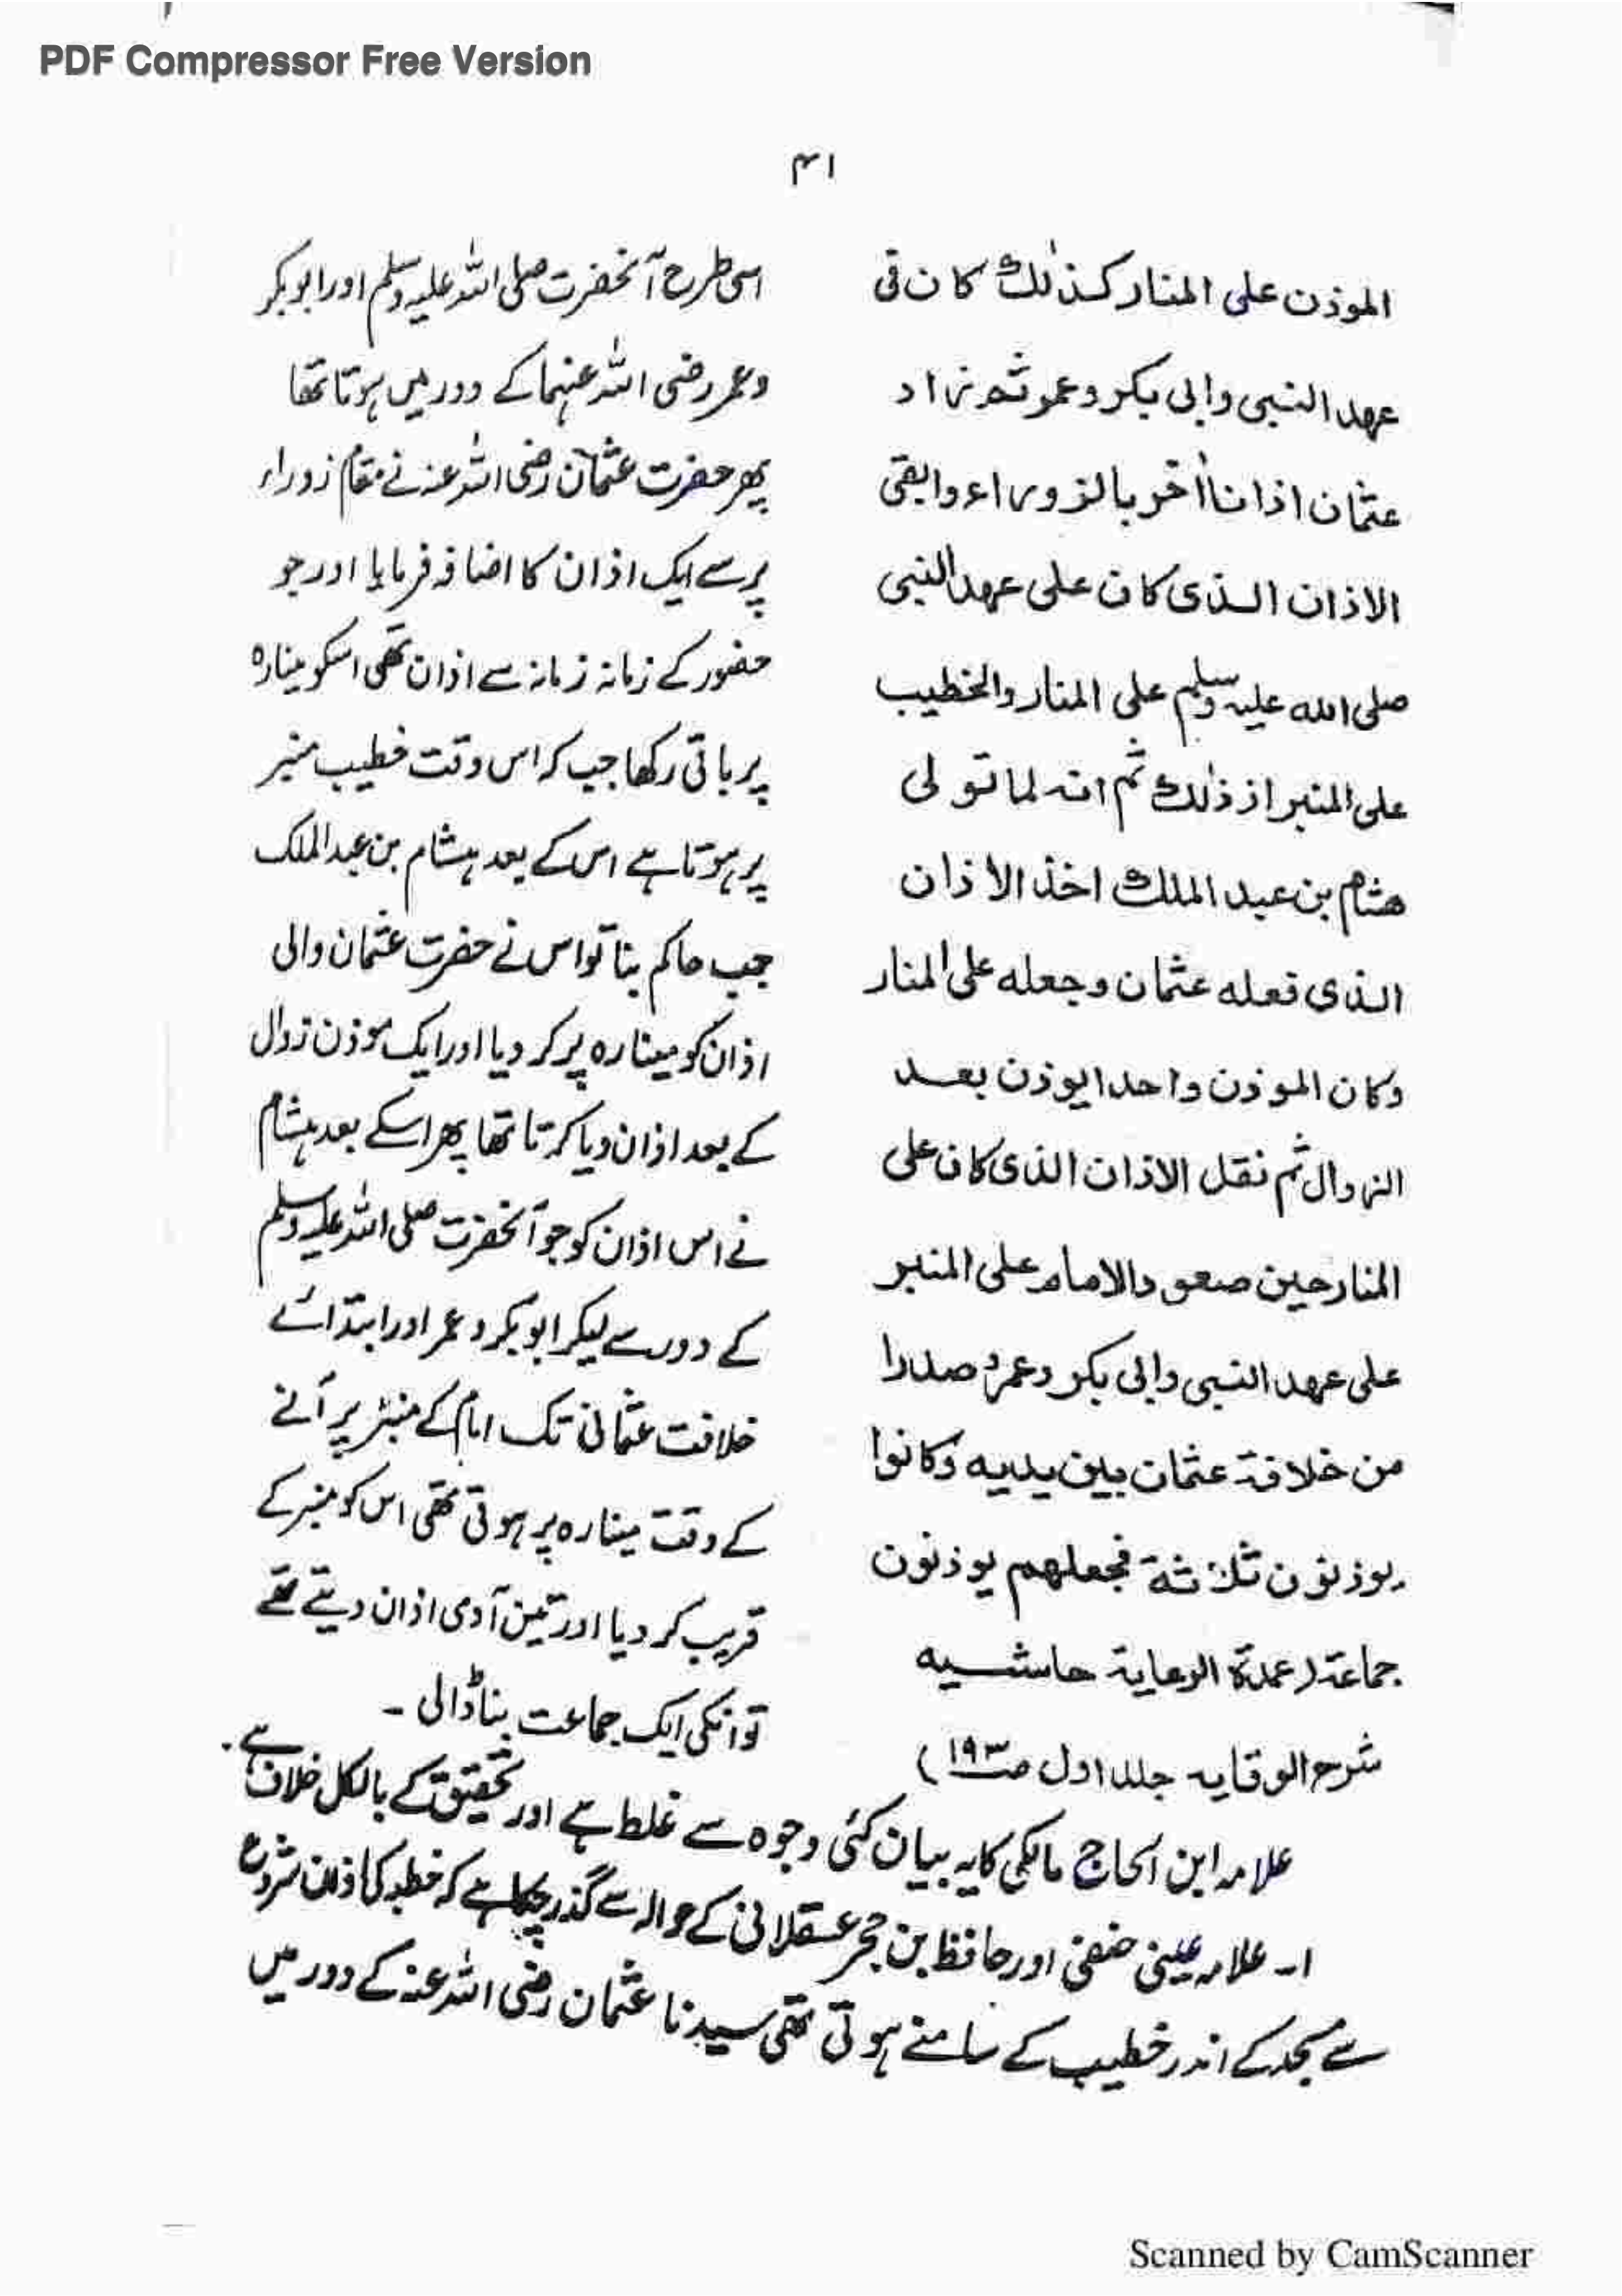 PDF Compressor Free Version
۴۱
الموذن على المنار كذٰلك كان فى
عهد النبى وابى بكر وعمر ثم زاد
عثمان اذانا اٰخر بالزوراء وابقى
الاذان الذى كان على عهد النبى
صلى الله عليه وسلم على المنار والخطيب
على المنبر از ذٰلك ثم انه لما تولى
هشام بن عبد الملك اخذ الاذان
الذى فعله عثمان وجعله على المنار
وكان الموذن واحدا يوذن بعد
الزوال ثم نقل الاذان الذى كان على
المنار حين صعود الامام على المنبر
على عهد النبى وابى بكر وعمرؓ صدرا
من خلافة عثمان بين يديه وكانوا
يوذنون ثلاثة فجعلهم يوذنون
جماعة (عمدة الرعاية حاشيه
شرح الوقايه جلد اول صـ۱۹۳)
اسی طرح آنحضرت صلی اللہ علیہ وسلم اور ابو بکر
وعمر رضی اللہ عنہما کے دور میں ہوتا تھا
پھر حضرت عثمان رضی اللہ عنہ نے مقام زوراء
پر سے ایک اذان کا اضافہ فرمایا اور جو
حضور کے زمانہ زمانہ سے اذان تھی اسکو مینارہ
پر باقی رکھا جب کہ اس وقت خطیب منبر
پر ہوتا ہے اس کے بعد ہشام بن عبدالملک
جب حاکم بنا تو اس نے حضرت عثمان والی
اذان کو مینارہ پر کر دیا اور ایک موذن زوال
کے بعد اذان دیا کرتا تھا پھر اسکے بعد ہشام
نے اس اذان کو جو آنحضرت صلی اللہ علیہ وسلم
کے دور سے لیکر ابو بکر و عمر اور ابتدائے
خلافت عثمانی تک امام کے منبر پر آنے
کے وقت مینارہ پر ہوتی تھی اس کو منبر کے
قریب کر دیا اور تین آدمی اذان دیتے تھے
تو انکی ایک جماعت بنا ڈالی ۔
علامہ ابن الحاج مالکی کا یہ بیان کئی وجوہ سے غلط ہے اور تحقیق کے بالکل خلاف ہے ۔
۱۔ علامہ عینی حنفی اور حافظ بن حجر عسقلانی کے حوالہ سے گذر چکا ہے کہ خطبہ کی اذان شروع
سے مسجد کے اندر خطیب کے سامنے ہوتی تھی سیدنا عثمان رضی اللہ عنہ کے دور میں
Scanned by CamScanner